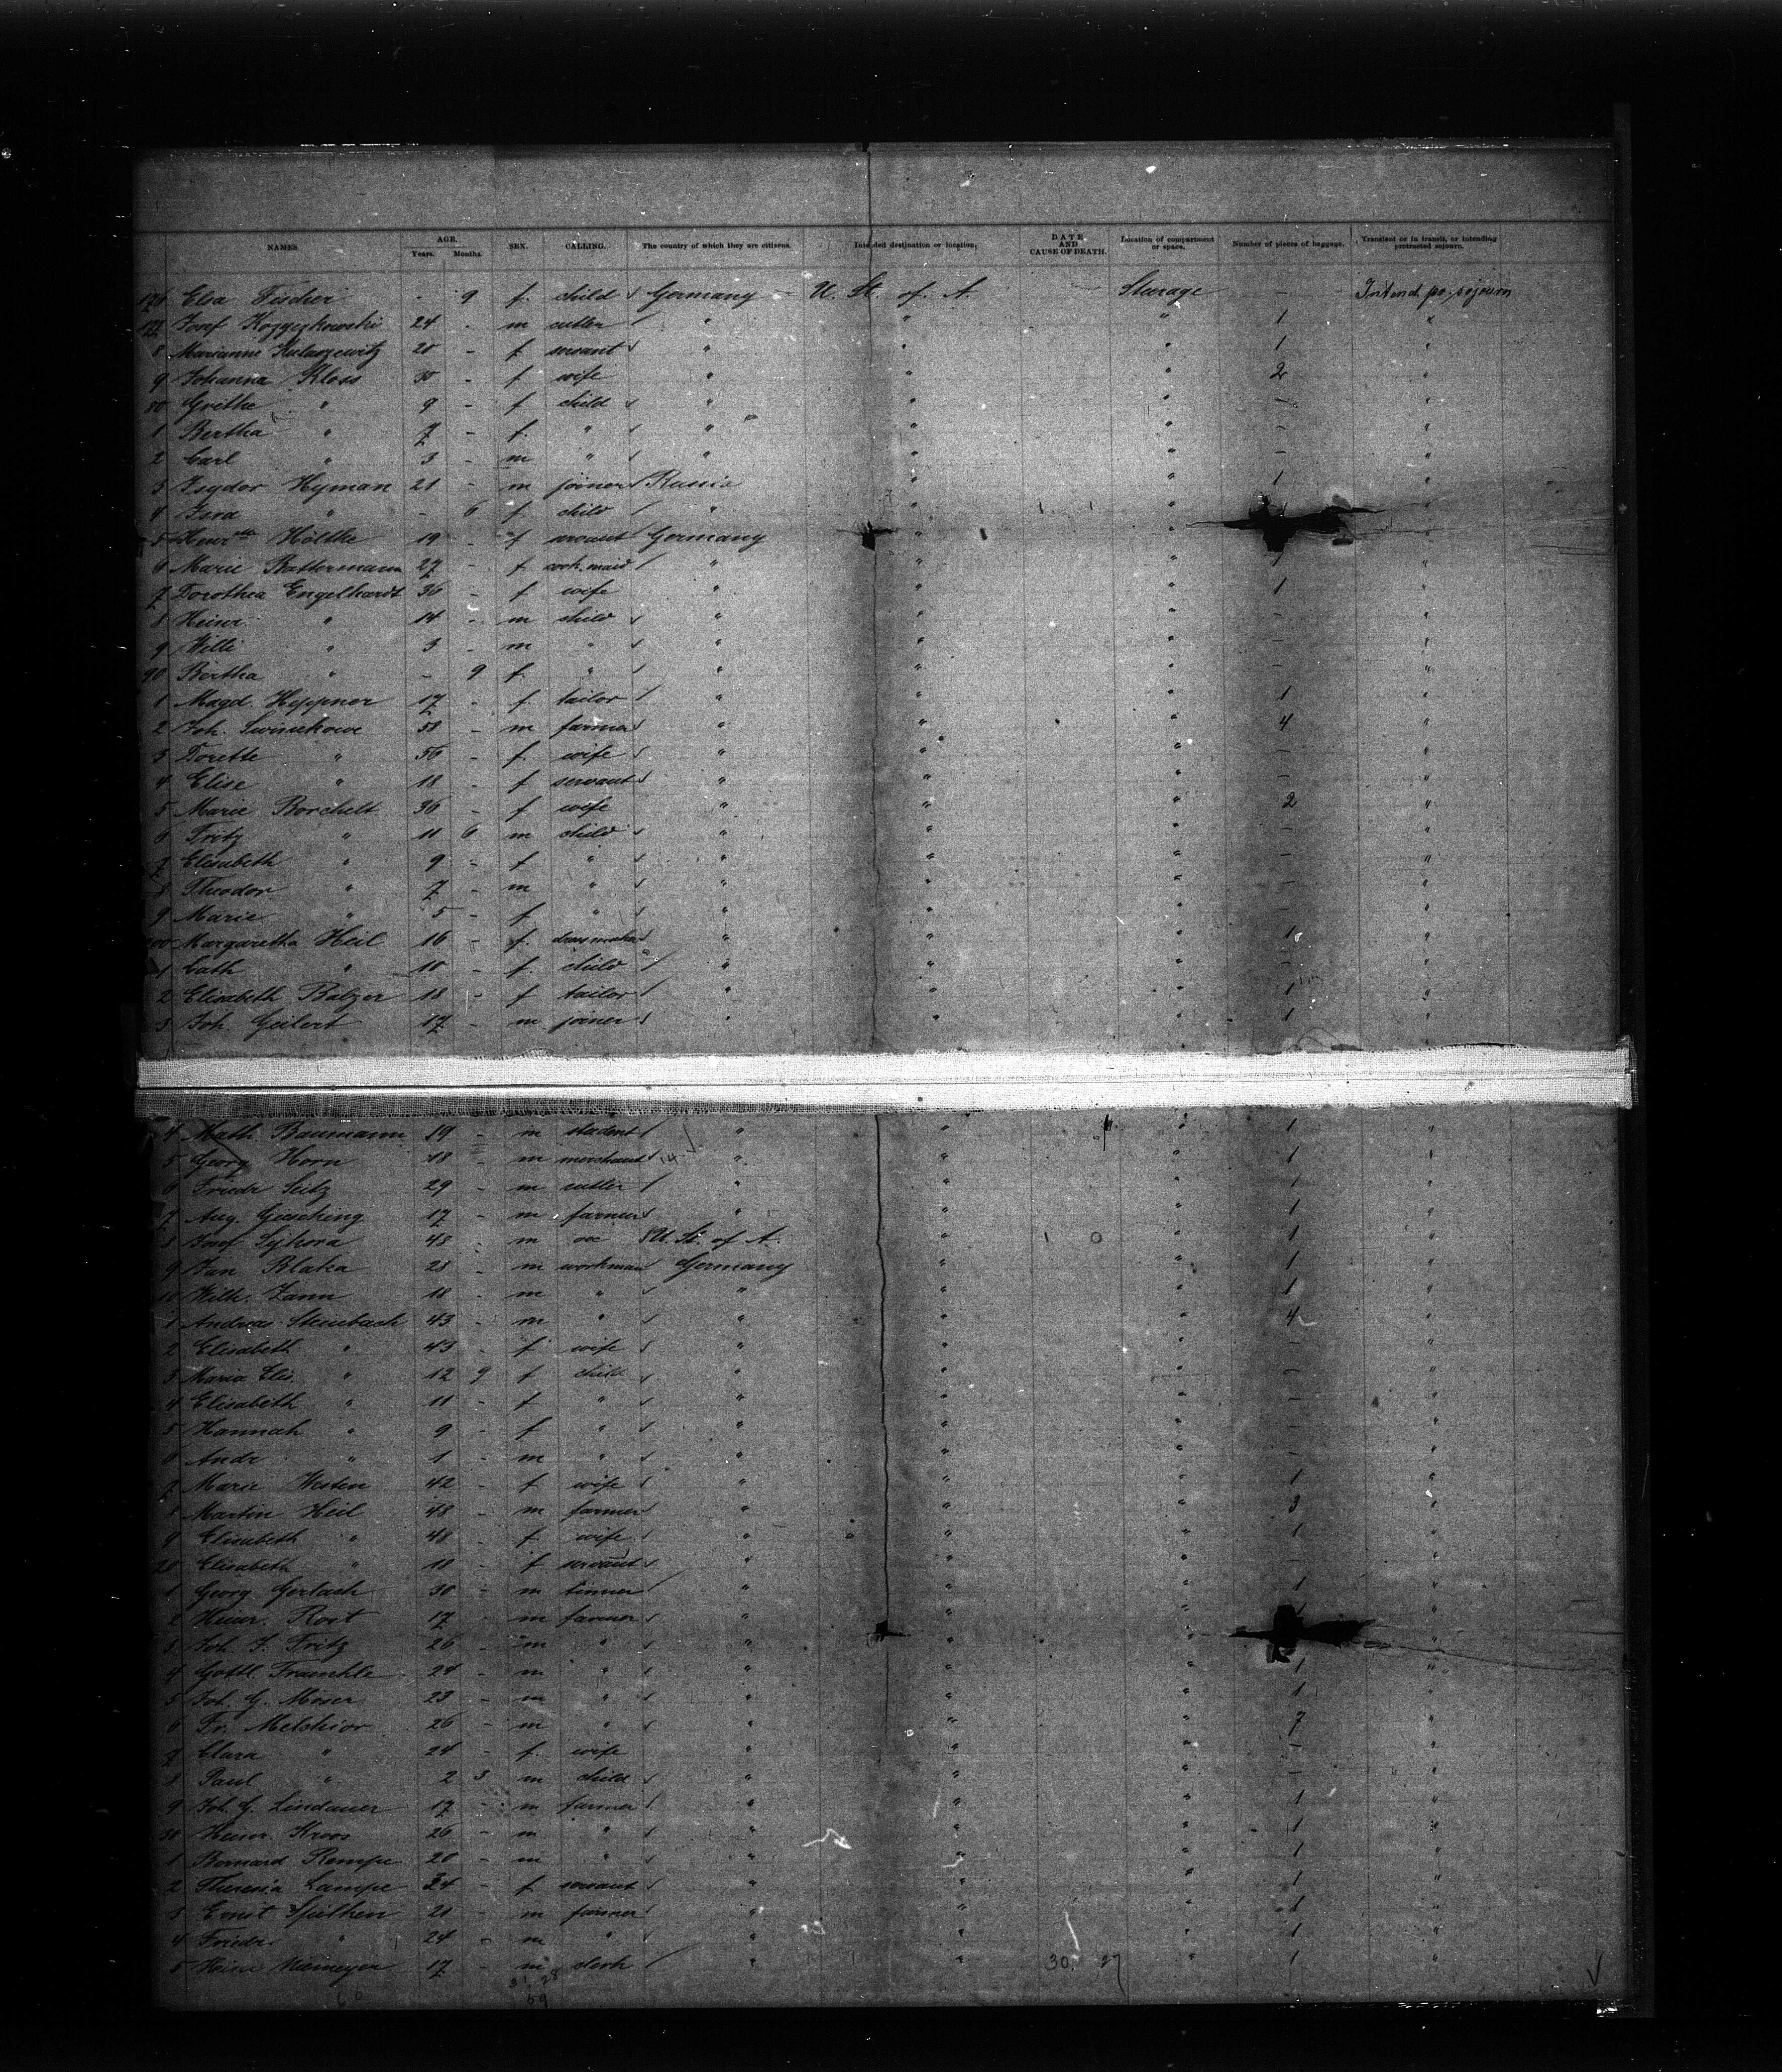 NAMES. AGE. Years. Months. SEX. CALLING. The country of which they are citizens. Intended destination or location. DATE AND CAUSE OF DEATH. Location of compartment or space. Number of pieces of baggage. Transient or in transit, or intending protracted sojourn.
176 Elsa Fischer - 9 f. child Germany U. St. of A. Steerage - Intend pr. sojourn
177 Josef 24 - m cutler " " " 1 "
8 Marianne 20 - f. servant " " " 1 "
9 Johanna Kloss 30 - f wife " " " 2 "
80 Grethe " 9 - f child " " " - "
1 Bertha " 7 - f. " " " " - "
2 Carl " 3 - m " " " " - "
3 Isydor Hyman 21 - m joiner Russia " " 1 "
4 Isra " - 6 f. child " " " "
5 Henr Höltke 19 - f servant Germany " " "
6 Marie Battermann 27 - f. " " " "
7 Dorothea Engelhardt 36 - f wife " " " 1 "
8 Heinr. " 14 - m child " " " - "
9 Willi " 3 - m " " " " - "
90 Bertha " - 9 f. " " " " - "
1 Magd. Heppner 17 - f. tailor " " " 1 "
2 Joh. 58 - m farmer " " " 4 "
3 Dorette " 56 - f. wife " " " - "
4 Elise " 18 - f servant " " " - "
5 Marie Borchelt 36 - f wife " " " 2 "
6 Fritz " 11 6 m child " " " - "
7 Elisabeth " 9 - f " " " " - "
8 Theodor " 7 - m " " " " - "
9 Marie " 5 - f " " " " - "
200 Margaretha Heil 16 - f. " " " 1 "
1 Cath " 10 - f. child " " " - "
2 Elisabeth Balzer 18 - f tailor " " " 1 "
3 Joh. Geilert 17 - m joiner " " " 1 "
4 Math. Baumann 19 - m student " " " 1 "
5 Georg Horn 18 - m merchant " " " 1 "
6 Friedr Seitz 29 - m cutler " " " 1 "
7 Aug. 17 - m farmer " " " 1 "
8 Josef Sykora 48 - m U. St. of A. " " 1 "
9 Jan Blaha 28 - m workman Germany " " 1 "
10 Wilh. Zann 18 - m " " " " 1 "
1 Andreas Steinbach 43 - m " " " " 4 "
2 Elisabeth " 43 - f wife " " " - "
3 Maria Elis. " 12 9 f child " " " - "
4 Elisabeth " 11 - f " " " " - "
5 Hannah " 9 - f " " " " - "
6 Andr. " 1 - m " " " " - "
7 Marie Westen 42 - f wife " " " 1 "
8 Martin Heil 48 - m farmer " " " 3 "
9 Elisabeth " 48 - f. wife " " " 1 "
20 Elisabeth " 18 - f servant " " " - "
1 Georg Gerlach 30 - m tinner " " " 1 "
2 Heinr. Rost 17 - m farmer " " " "
3 Joh. F. Fritz 26 - m " " " " "
4 Gottl. 24 - m " " " " 1 "
5 Joh. G. Moser 23 - m " " " " 1 "
6 Fr. Melchior 26 - m " " " " 7 "
7 Clara " 24 - f. wife " " " - "
8 Paul " 2 3 m child " " " - "
9 Joh. G. Lindauer 17 - m farmer " " " 1 "
30 Heinr. Kroos 26 - m " " " " 1 "
1 Bernard Rempe 20 - m " " " " 1 "
2 Theresia Lampe 24 - f. servant " " " 1 "
3 Ernst 21 - m farmer " " " 1 "
4 Friedr. " 24 - m " " " " 1 "
5 Heinr. 17 - m clerk " " 30. 27 " 1 "